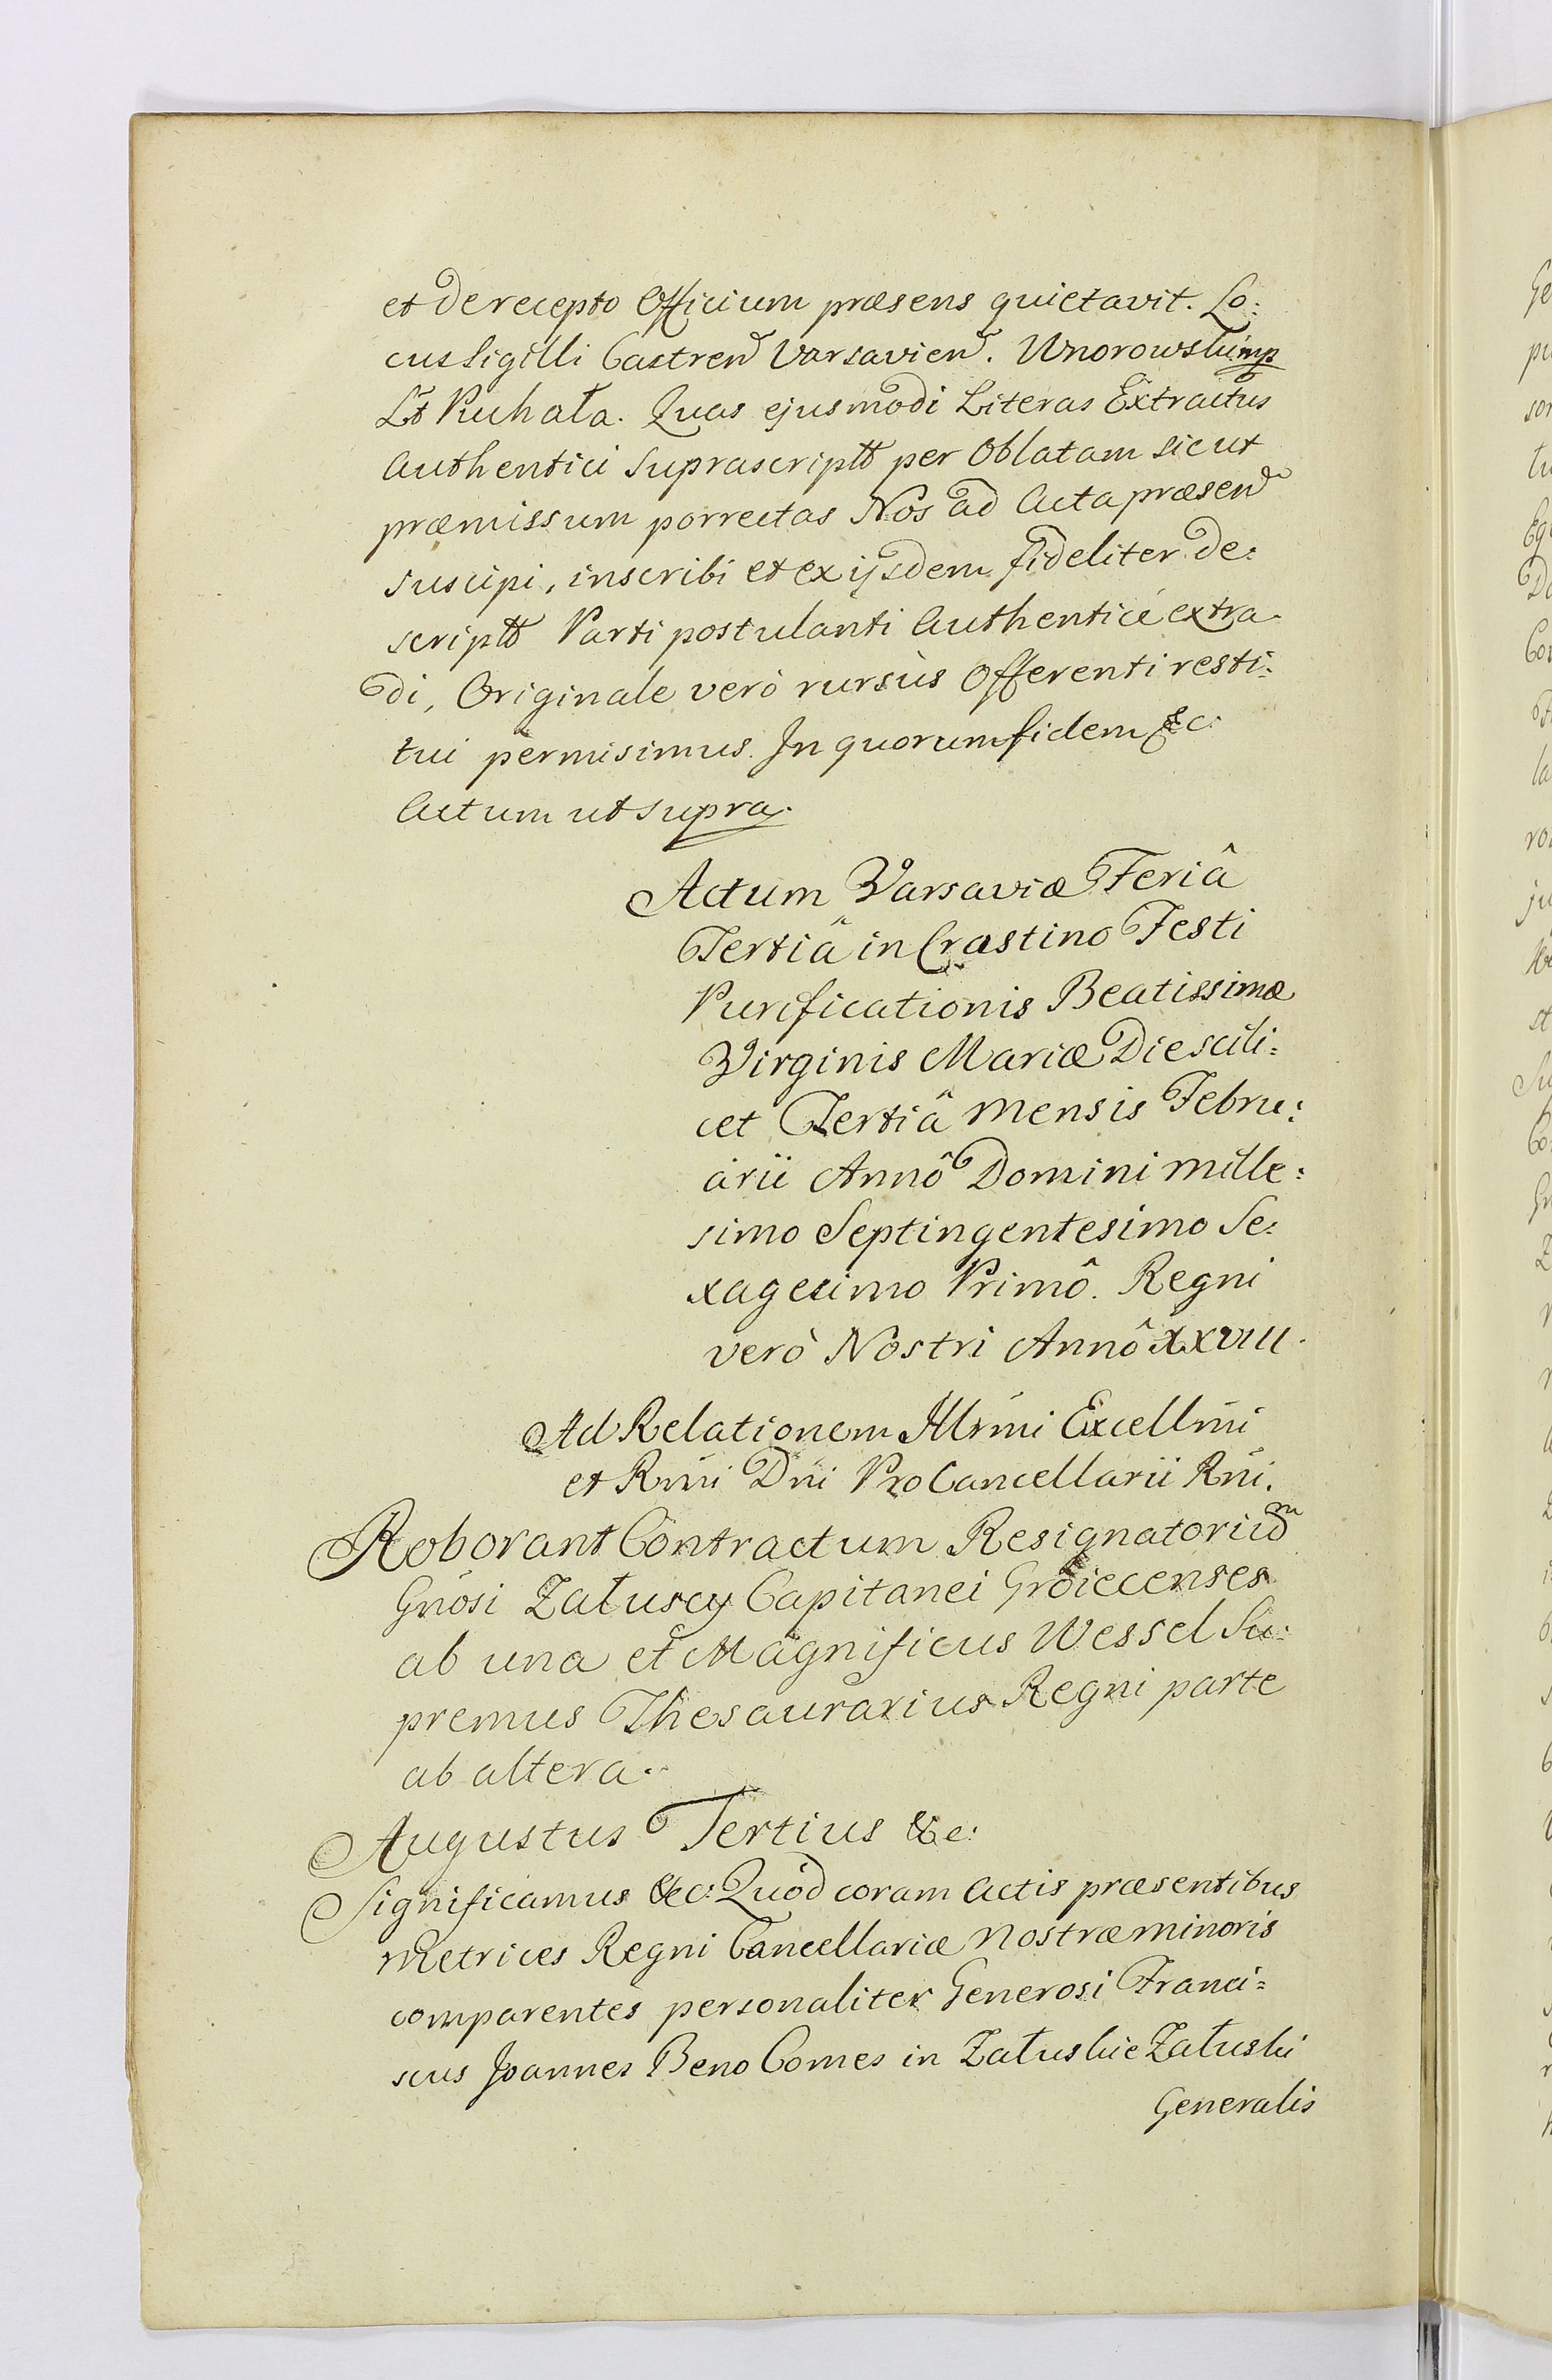 et de recepto Officium præsens quietavit. Lo:
cus Sigilli Castren Varsavien. Unorowski mp
Lt Puchała. Quas ejusmodi Literas Extractus
Authentici suprascriptt per Oblatam sicut
præmissum porrectas Nos ad Acta præsen
suscipi, inscribi et ex ijsdem fideliter de:
scriptt Parti postulanti Authenticè extra
di, Originale verò rursùs Offerenti resti:
tui permisimus. In quorum fidem &c:
Actum ut supra.
Actum Varsaviæ Feriâ
Tertiâ in Crastino Festi
Purificationis Beatissimæ
Virginis Mariæ Die scili:
cet Tertiâ Mensis Febru:
arii Annô Domini Mille:
simo Septingentesimo Se:
xagesimo Primô. Regni
verò Nostri Annô XXVIII.
Ad Relationem Illrmi Excellmi
et Rmi Dni ProCancellarii Rni.
Roborant Contractum Resignatorium
Gnosi Załuscy Capitanei Groiecenses
ab una et Magnificus Wessel Su:
premus Thesaurarius Regni parte
ab altera.
Augustus Tertius &c:
Significamus &c: Quod coram Actis præsentibus
Metrices Regni Cancellariæ Nostræ minoris
comparentes personaliter Generosi Franci:
scus Joannes Beno Comes in Załuskie Załuski
Generalis